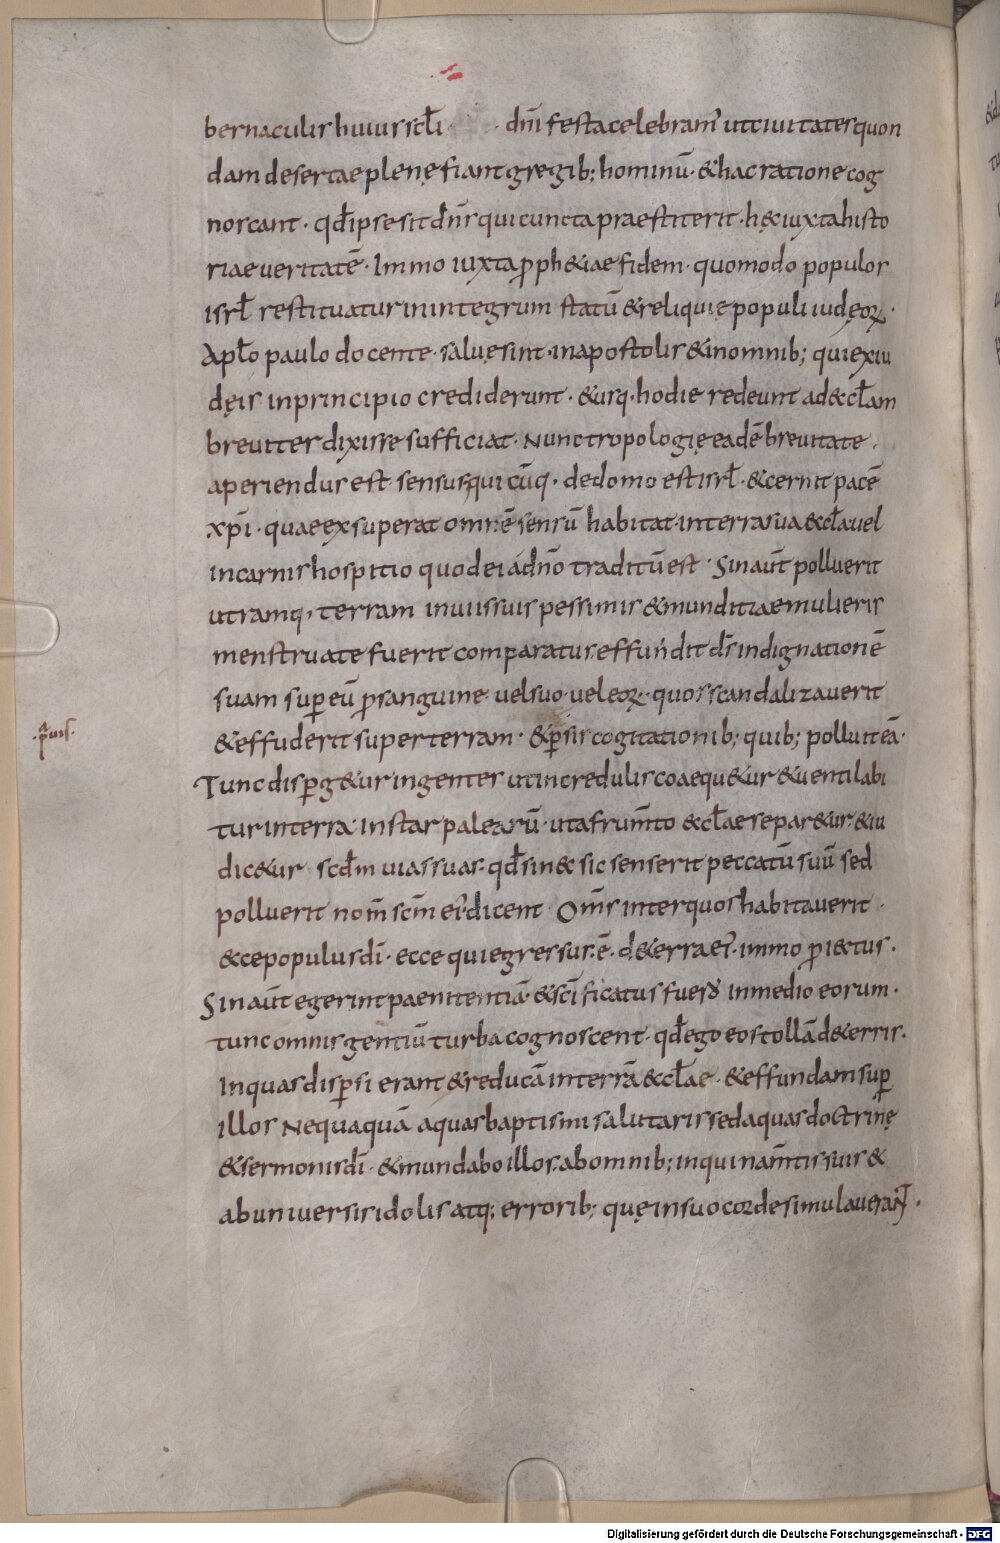 bernaculis huius scł̄i dn̄i festa celebram᾽ ut ciuitates quon
dam desertae plenę fiant gregib; hominū· & hac ratione cog
noscant· qđ ipse sit dn̄s qui cuncta praestiterit· h&̨ iuxta histo
riae ueritatē· Immo iuxta ꝓph&iae fidem· quomodo populos
isrł restituatur in integrum statū & reliquię populi iudęoꝝ·
Apłō paulo docente· saluę sint· in apostolis & in omnib; qui ex iu
dęis in principio crediderunt· & usq· hodie redeunt ad &cłam
breuiter dixisse sufficiat· Nunc tropologię eadē breuitate·
aperiendus est sensus qui cūq· de domo est isrł· & cernit pacē
xp̄i· quae exsuperat omnē sensū habitat in terra sua &cła uel
in carnis hospitio quod ei a dn̄o traditū est· Sin aūt polluerit
utramq· terram in uiis suis pessimis & munditiae mulieris
menstruate fuerit comparatus effundit dn̄s indignationē
suam sup̱ eū p̱ sanguine uel suo uel eoꝝ· quos scandalizauerit
·p̱uis·
& effuderit super terram· & p̱sis cogitationib; quib; polluit eā·
Tunc disp̱g&ur in gentes ut incredulis coaequ&ur & uentilabi
tur in terra instar palearū· ut a frum̄to &cłae separ&ur· & iu
dic&ur scđm uias suas· qđ sin& sic senserit peccatū suū sed
polluerit nom̄ sc̄m ei᾽ dicent Om̄s inter quos habitauerit·
&ce populus dī· ecce qui egressus ē· d& erra ei᾽· immo ꝓiectus·
Sin aūt egerint paenitentiā· & sc̄ificatus fuerō in medio eorum·
tunc omnis gentiū turba cognoscent· qđ ego eos tollā d&erris·
In quas disp̱si erant & reducā in terrā &cłae· & effundam sup̱
illos Nequaquā aquas baptismi salutaris sed aquas doctrinę
& sermonis dī· & mundabo illos· ab omnib; inquinam̄tis suis &
ab uniuersis idolis atq; errorib; quę in suo corde simulauerant·
Digitalisierung gefördert durch die Deutsche Forschungsgemeinschaft - DFG